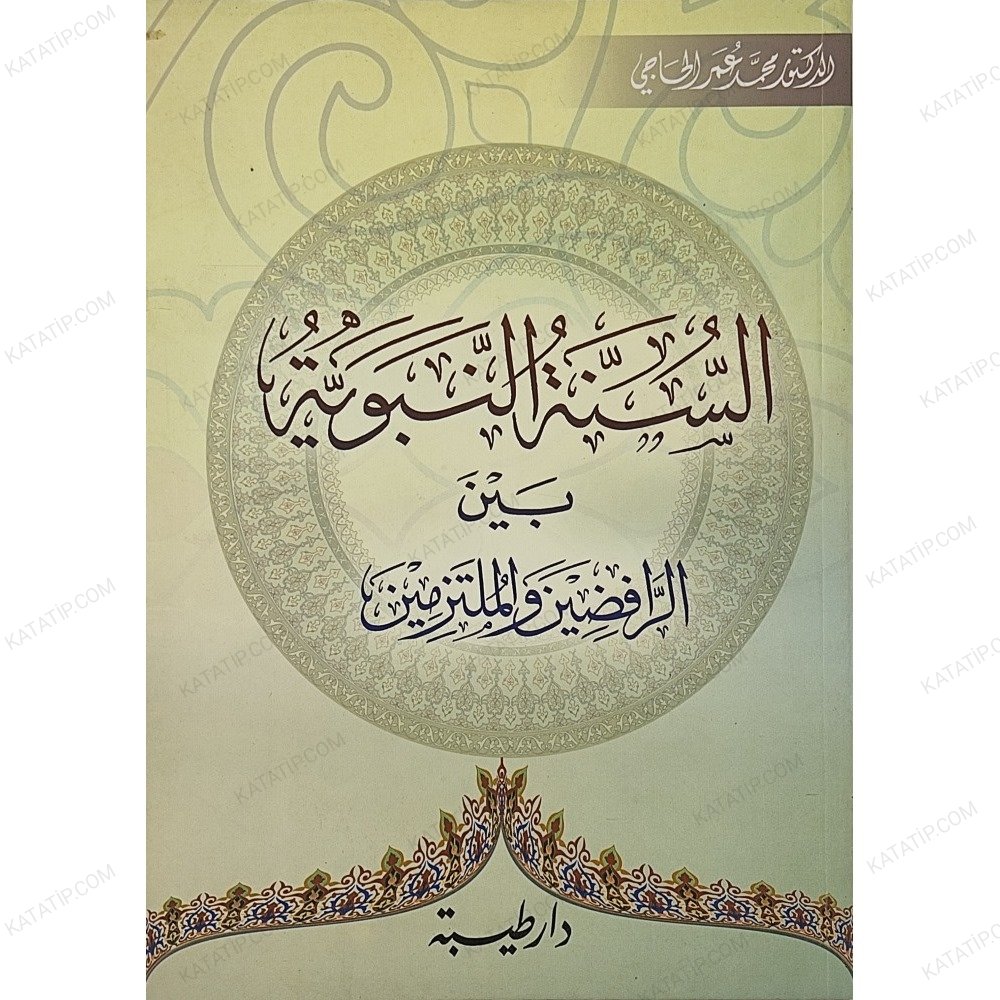 الدكتور محمد عمر الحاجي
السُّنَّةُ النَّبَوِيَّةُ
بَيْنَ
الرَّافِضِينَ وَالمُلتَزِمِينَ
دار طيبة
KATATİP.COM